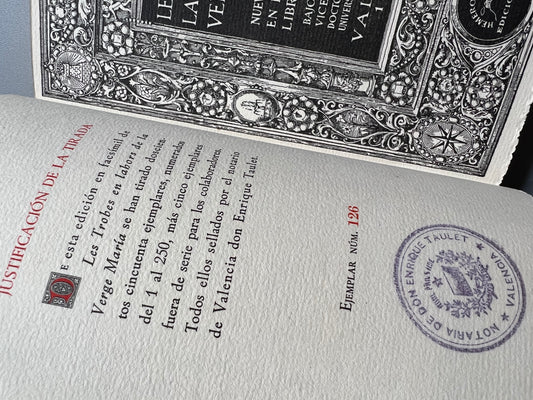 LE
LA
VE
NUEV
EN L
LIBR
BAUC
VICE
DOCTO
UNIVER
VAL
1
EDICIO
JUSTIFICACIÓN DE LA TIRADA
DE esta edición en facsímil de
Les Trobes en labors de la
Verge María se han tirado doscien-
tos cincuenta ejemplares, numerados
del 1 al 250, más cinco ejemplares
fuera de serie para los colaboradores.
Todos ellos sellados por el notario
de Valencia don Enrique Taulet.
EJEMPLAR NÚM. 126
NOTARIA DE D.N ENRIQUE TAULET
VALENCIA
NIHIL PRIUS FIDE